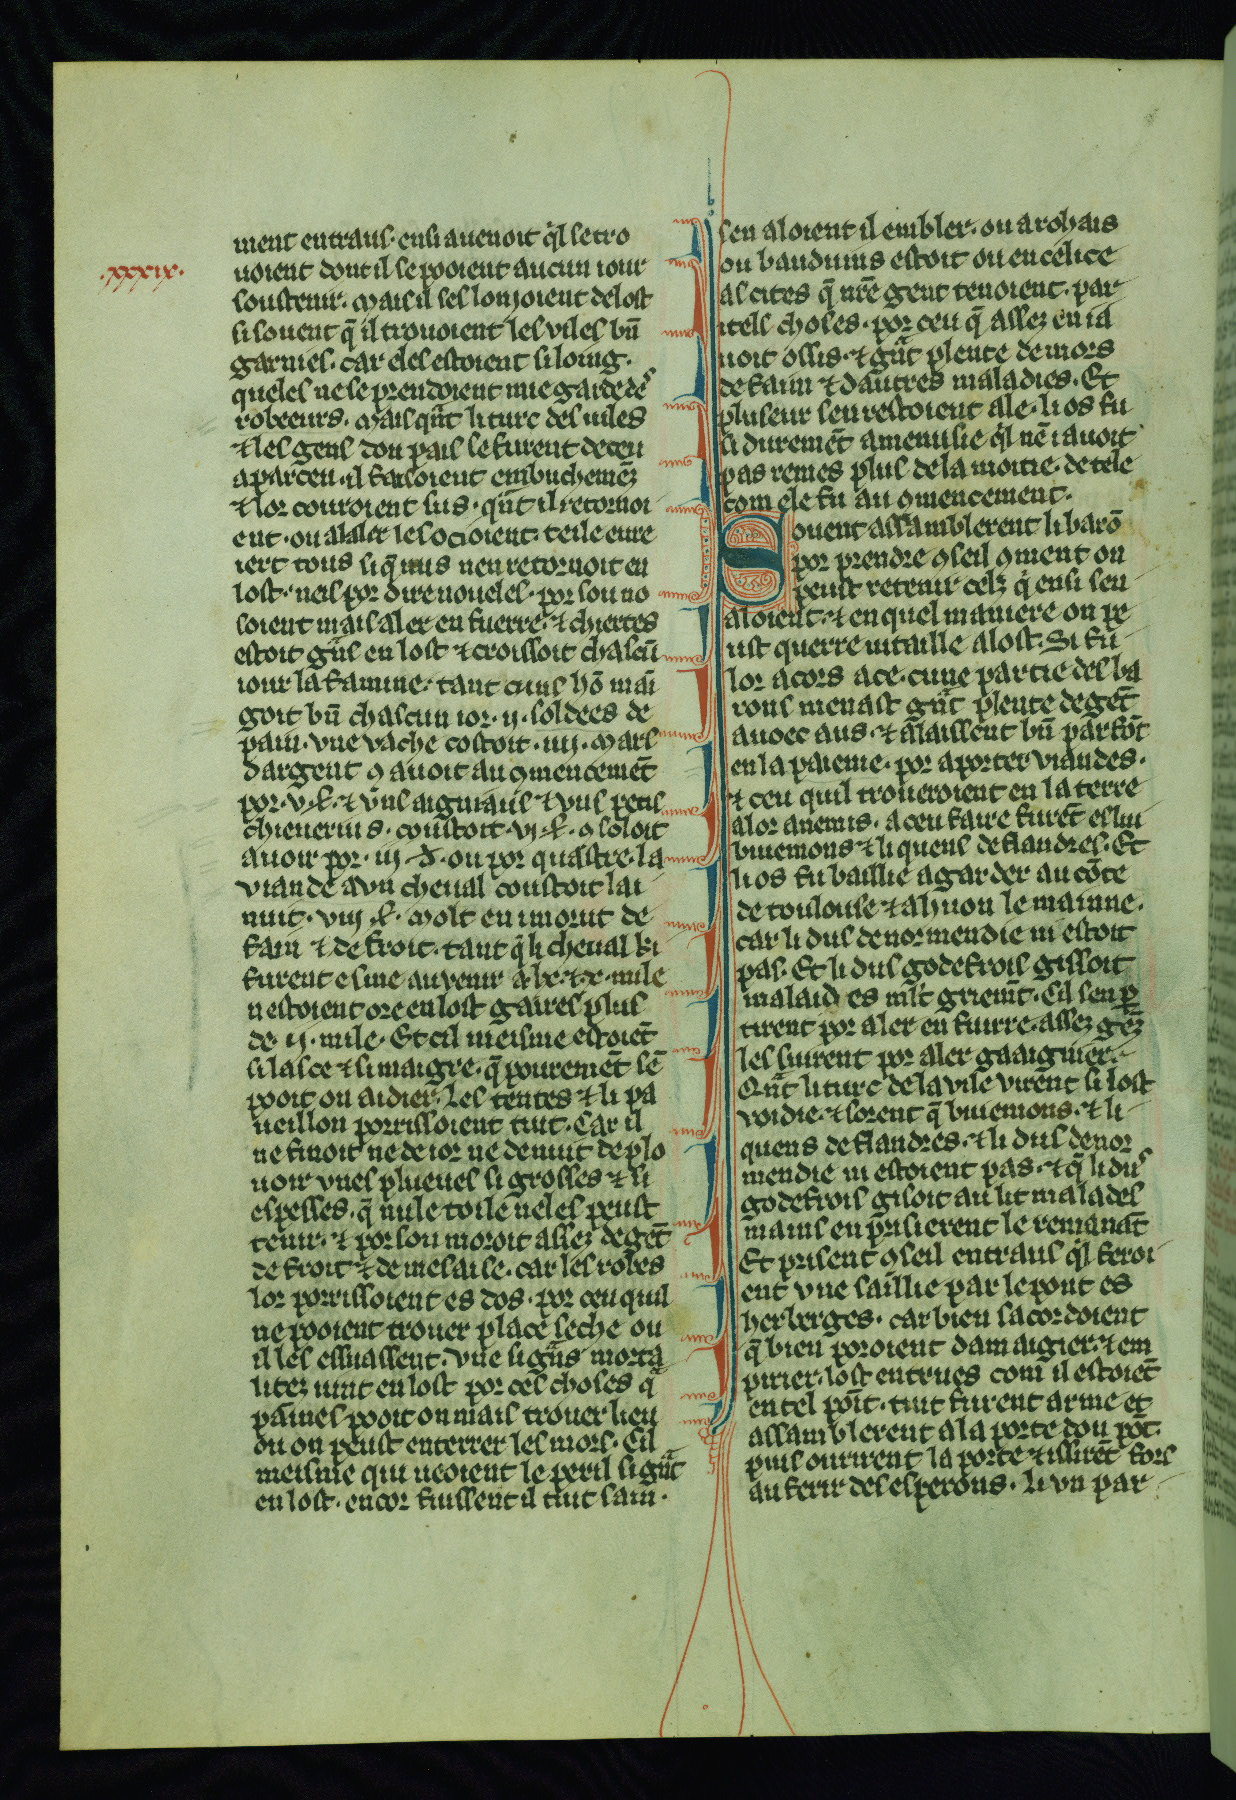 .xxxix.
ment entraus. ensi auenoit q̃l se tro
uoient dont il se pooient aucun iour
soustenir. Mais il ses lonjoient de lost
si souent q̃ il trouoient les viles bñ
garnies. car eles estoient si loing.
queles ne se prendoient mie garde d's
robeeurs. Mais qñt li turc des viles
⁊ les gens dou pais se furent de ceu
aparceu. il faisoient embuchemẽz
⁊ lor couroient sus. qñt il retornoi
ent. ou al aler les ocioient. teile eure
iert tous si q̃ nus nen retornoit en
lost. neis por dire noueles. por sou no
soient mais aler en fuerre. ⁊ chiertes
estoit gñs en lost ⁊ croissoit chascũ
iour la famine. tant cuns hõ mãi
goit bñ chascun ior. ij. soldees de
pain. vne vache costoit. iiij. mars
dargent ꝯ auoit au ꝯmencemẽt
por. v. s. ⁊ vñs aigniaus ⁊ vns petis
chieuerius. coustoit. vj. s. ꝯ soloit
auoir por. iij. d. ou por quastre. la
viande a vn cheual coustoit lai
nuit. viij. s. Molt en i morut de
fain ⁊ de froit. tant q̃ li cheual ki
furent esme au venir a. lx. ⁊. x. mile
nestoient ore en lost gaires plus
de. ij. mile. Et cil meisme estoiẽt
si lasce ⁊ si maigre. q̃ pouremẽt sẽ
pooit on aidier. Les tentes ⁊ li pa
ueillon porrissoient tuit. Car il
ne finoit ne de ior ne de nuit de plo
uoir vnes plueues si grosses ⁊ si
espesses. q̃ nule toile ne les peust
tenir. ⁊ por sou moroit assez de gẽt
de froit ⁊ de mesaise. car les robes
lor porrissoient es dos. por ceu quil
ne pooient trouer place seche ou
il les essuassent. vne si gñs morta
litez vint en lost por ces choses q̃
paines pooit on mais trouer lieu
ou on peust enterrer les mors. Cil
meisme qui ueoient le peril si gñt
en lost. encor fuissent il tuit sain.
sen aloient il embler. ou a rohais
ou bauduins estoit ou en celice
as cites q̃ nr̃e gent tenoient. par
itels choses. por ceu q̃ assez en ia
uoit ossis. ⁊ gñt plente de mors
de faim ⁊ dautres maladies. Et
pluseur sen restoient ale. li os fu
si duremẽt amenusie q̃l nẽ i auoit
pas remes plus de la moitie. de tele
com ele fu au ꝯmencement.
Souent assamblerent li barõ
por prendre ꝯseil ꝯment on
peust retenir celz q̃ ensi sen
aloient. ⁊ en quel maniere on pe
ust querre vitaille a lost. Si fu
lor acors a ce. cune partie des ba
rons menast gñt plente de gẽt
auoec aus. ⁊ alaissent bñ parfõt
en la paienie. por aporter viandes.
⁊ ceu quil troueroient en la terre
a lor anemis. a ceu faire furẽt eslui
buiemons ⁊ li quens de flandres. Et
li os fu baillie a garder au cõte
de toulouse ⁊ a huon le mainne.
car li dus de normendie ni estoit
pas. Et li dus godefrois gissoit
malaid es ml't griemt̃. Cil sen ꝑ
tirent por aler en fuirre. assez gẽz
les siuirent por aler gaaignier.
Qñt li turc de la vile virent si lost
voidie. ⁊ sorent q̃ buiemons. ⁊ li
quens de flandres. ⁊ li dus de nor
mendie ni estoient pas. ⁊ q̃ li dus
godefrois gisoit au lit malades
mains en prisierent le remanãt
Et prisent ꝯseil entraus q̃l feroi
ent vne saillie par le pont es
herberges. car bien sacordoient
q̃ bien poroient damaigier. ⁊ em
pirier. lost entrues com il estoiẽt
en tel poĩt. tuit furent arme et
assamblerent a la porte dou põt.
puis ouurirent la porte ⁊ issirẽt fors
au ferir des esperons. li vn par